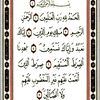 بِسْمِ اللَّهِ الرَّحْمَٰنِ الرَّحِيمِ
الْحَمْدُ لِلَّهِ رَبِّ الْعَالَمِينَ
الرَّحْمَٰنِ الرَّحِيمِ مَالِكِ يَوْمِ الدِّينِ إِيَّاكَ
نَعْبُدُ وَإِيَّاكَ نَسْتَعِينُ اهْدِنَا
الصِّرَاطَ الْمُسْتَقِيمَ صِرَاطَ الَّذِينَ
أَنْعَمْتَ عَلَيْهِمْ غَيْرِ الْمَغْضُوبِ
عَلَيْهِمْ وَلَا الضَّالِّينَ